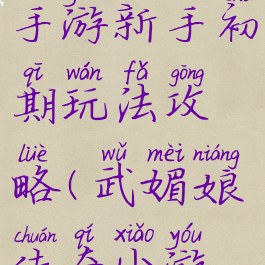 手游新手初
qī wán fǎ gōng
期玩法攻
lüè wǔ mèi niáng
略(武媚娘
chuán qí xiǎo yóu
传奇小游